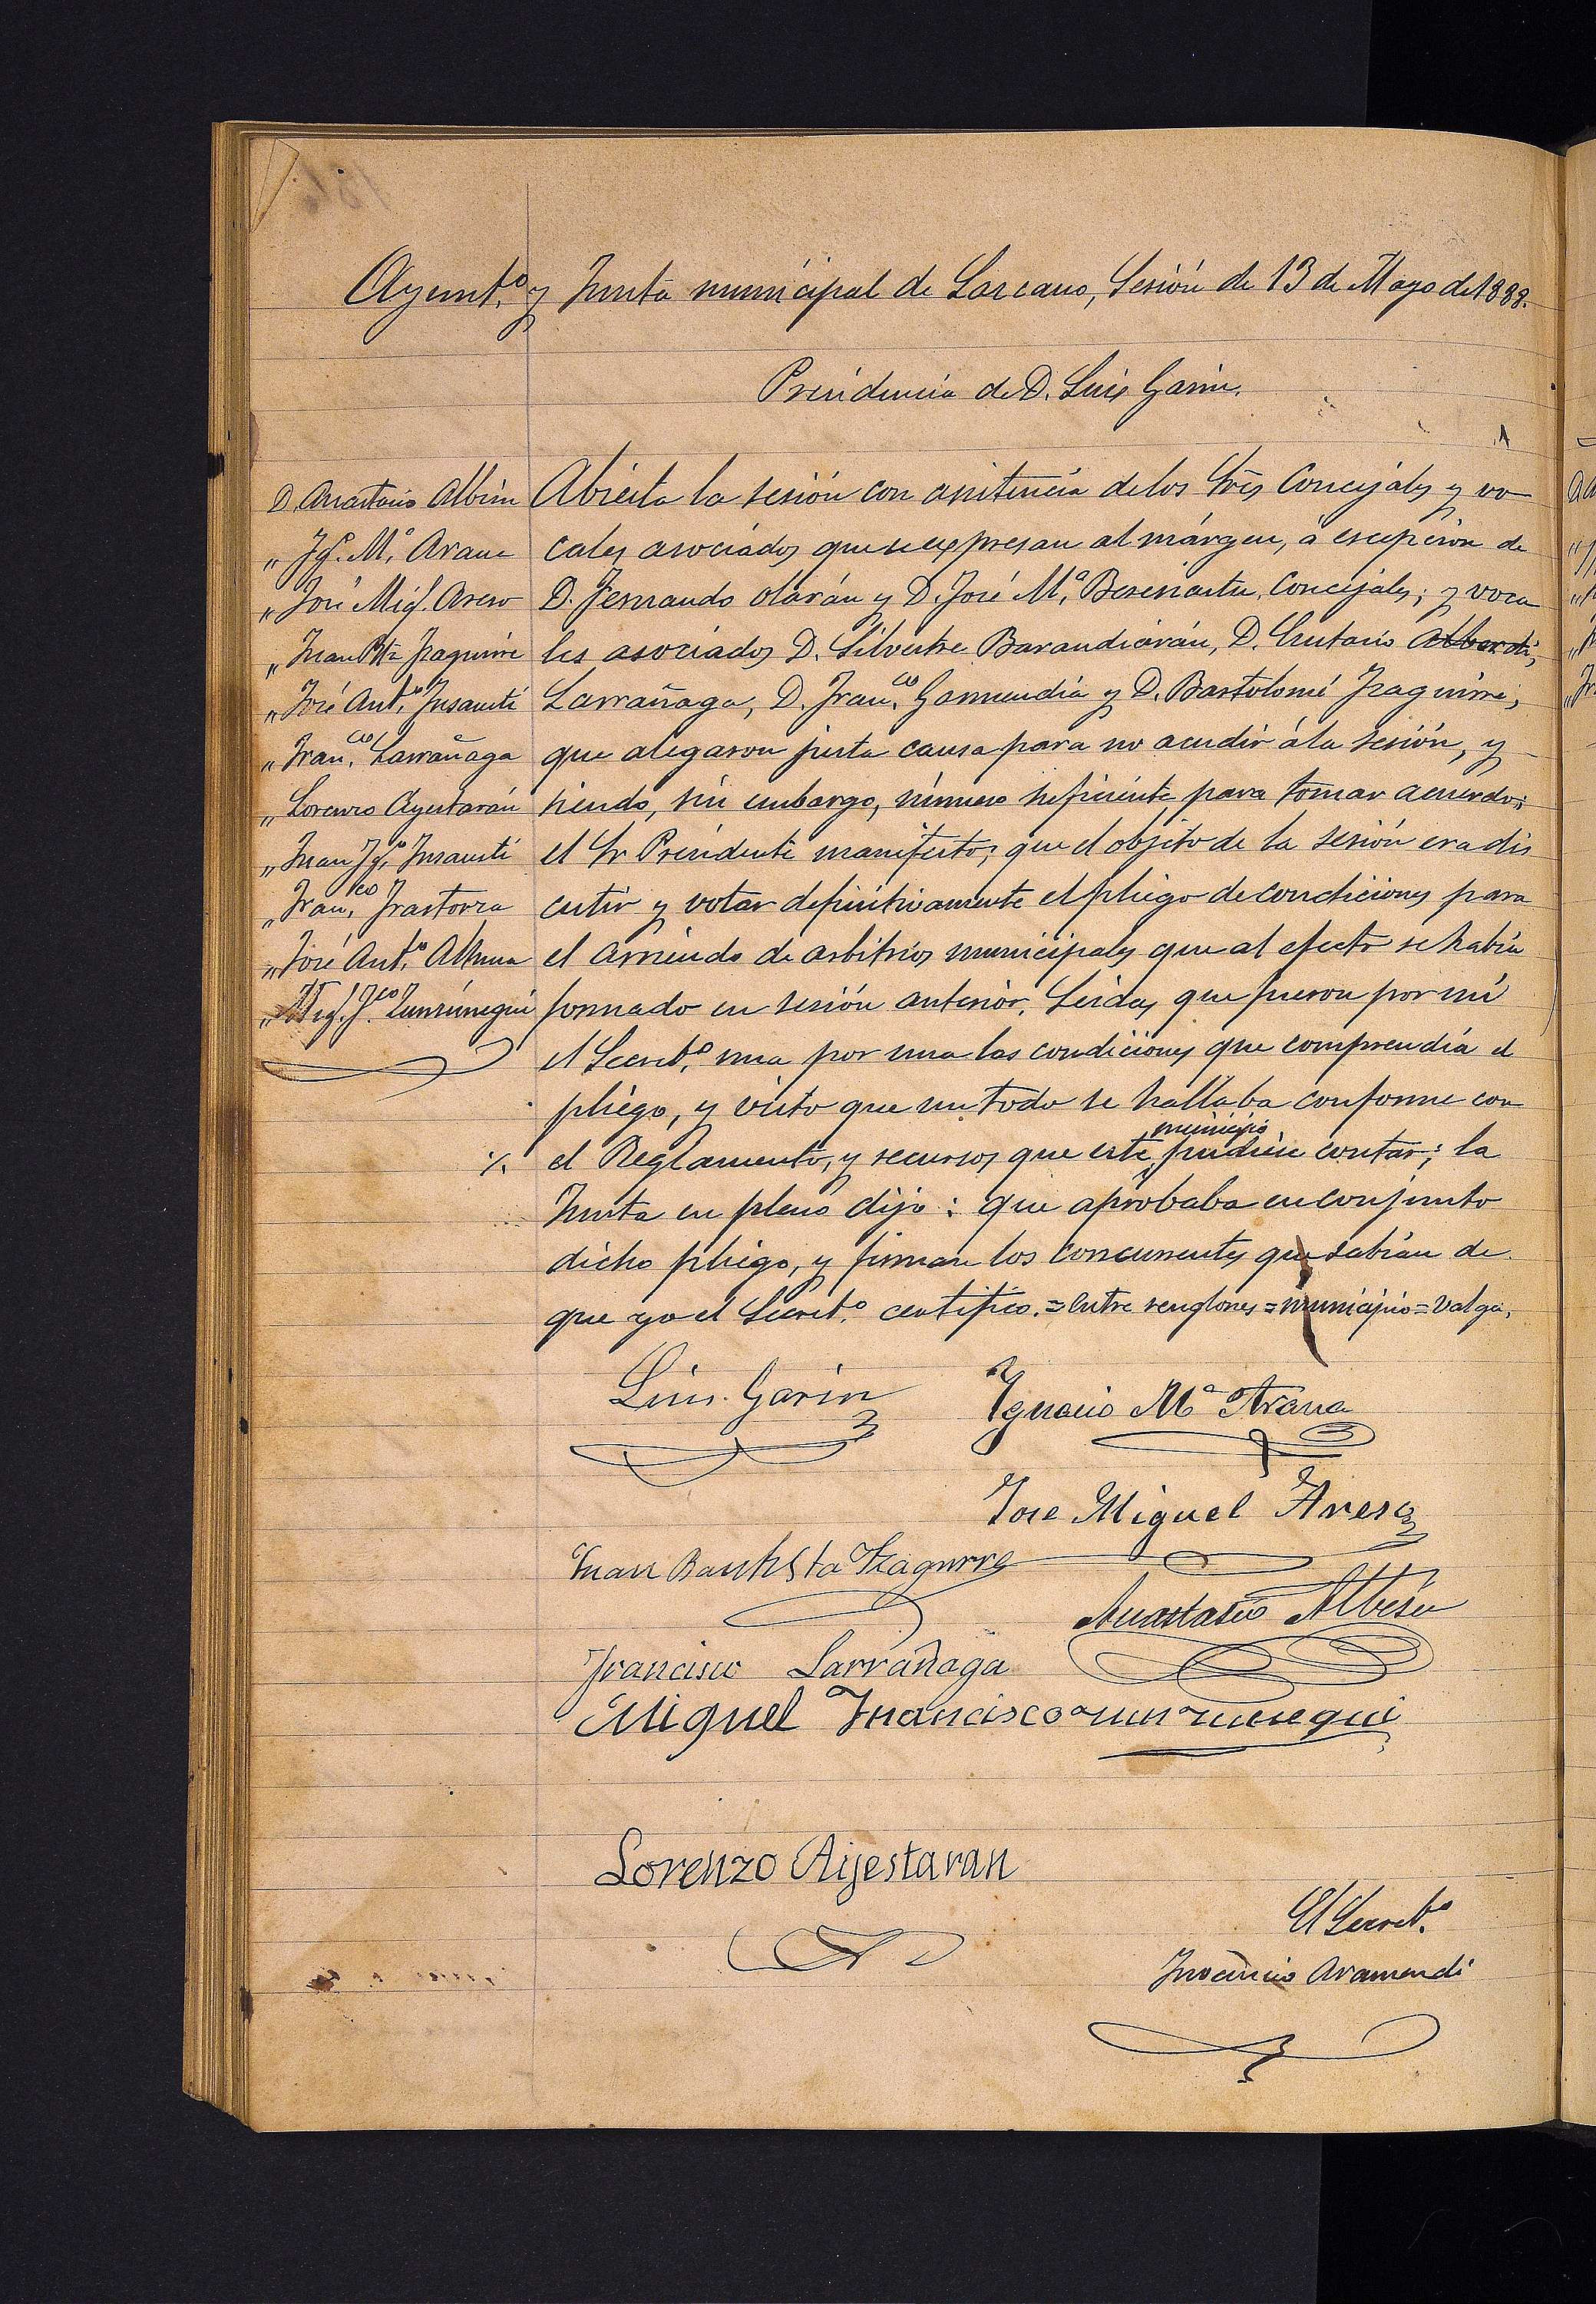 Ayunt.º y Junta municipal de Lazcano, Sesión de 13 de Mayo de 1888.
Presidencia de D. Luis Garin.
D. Anastasio Albisu
„ Ig.º M.ª Arana
„ José Mig.l Areso
„ Juan Bta Izaguirre
„ José Ant.º Insausti
„ Fran.co Larrañaga
„ Lorenzo Ayestarán
„ Juan Ig.º Insausti
„ Fran.co Irastorza
„ José Ant.º Altuna
„ Mig.l F.co Zunzunegui
Abierta la sesión con asistencia de los Sres Concejales y vo
cales asociados que se expresan al márgen, á escepción de
D. Fernando Olarán y D. José M.ª Berasiartu, Concejales; y voca
les asociados D. Silvestre Barandiarán, D. Eustasio Alberdi,
Larrañaga, D. Fran.co Garmendia y D. Bartolomé Izaguirre,
que alegaron justa causa para no acudir á la sesión, y
siendo, sin embargo, número suficiente para tomar acuerdo;
el Sr Presidente manifestó; que el objeto de la sesión era dis
cutir y votar definitivamente el pliego de condiciones para
el arriendo de arbitrios municipales que al efecto se había
formado en sesión anterior. Leidas que fueron por mí
el Secret.º una por una las condiciones que comprendía el
pliego, y visto que en todo se hallaba conforme con
municipio
·/. el Reglamento, y recursos que este pudiese contar; la
Junta en pleno dijo: que aprobaba en conjunto
dicho pliego, y firman los concurrentes que sabían de
que yo el Secret.º certifico. = Entre renglones = municipio = Valga.
Luis Garin
Ignacio Mª Arana
Jose Miguel Areso
Juan Bautista Izagirre
Anastasio Albisu
Francisco Larrañaga
Miguel Francisco Zunzunegui
Lorenzo Aijestaran
El Secret.º
Inocencio Aramendi